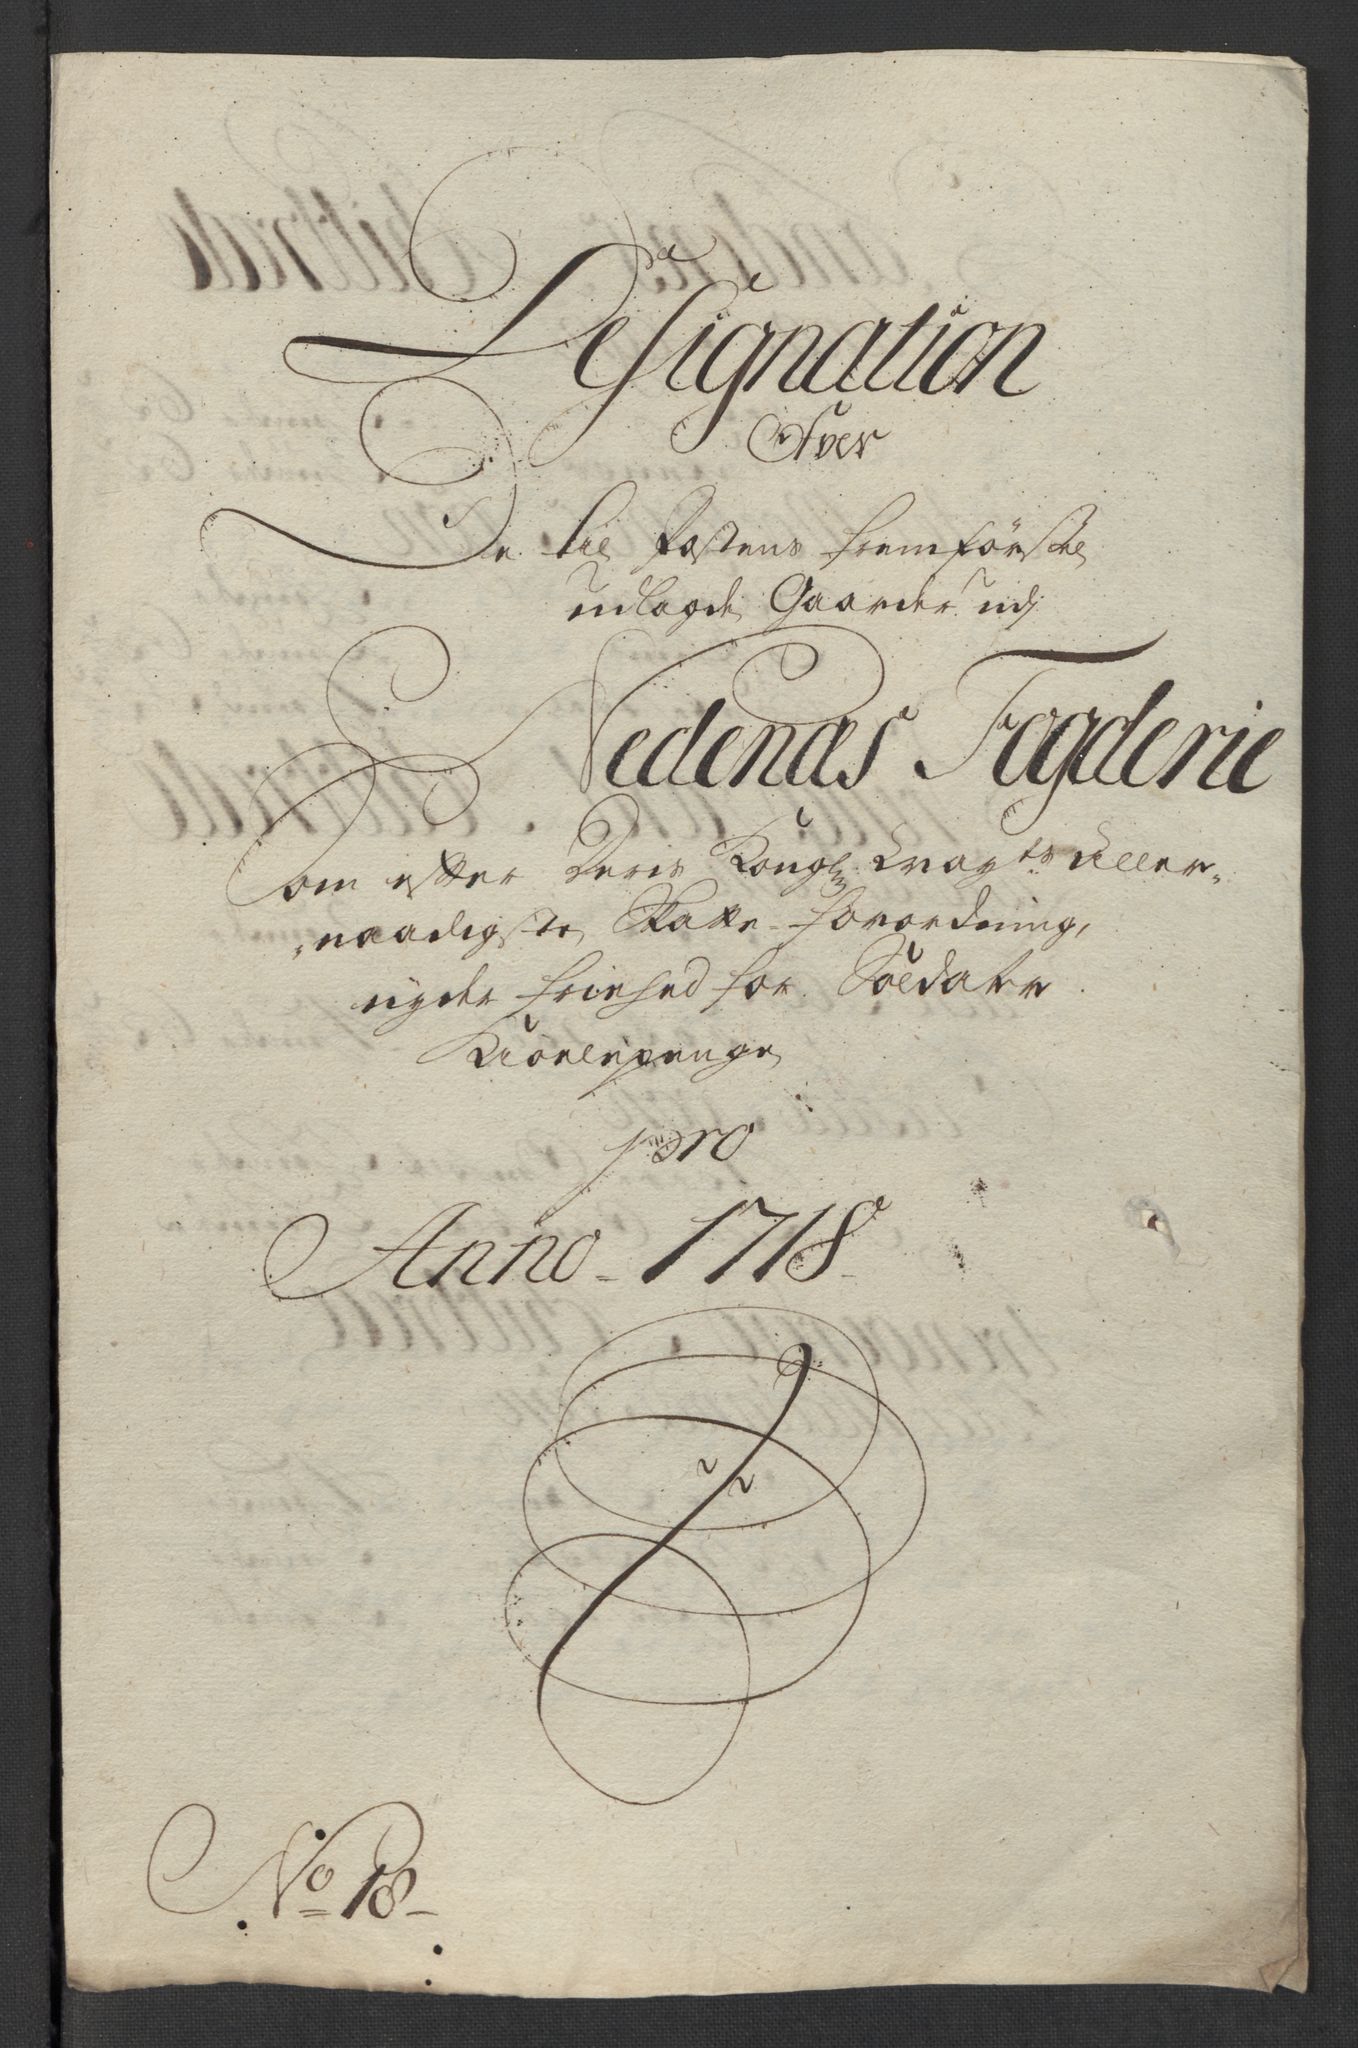 Designation
Over
De til Postens fremførsel
udlagde Gaarder udj
Nedenæs Fogderie
Som efter Deris Kongl: Mayts aller„
„naadigste Skatte-forordning,
nyder friehed for Soldater
Kiolepenge
pro
Anno 1718
No 18